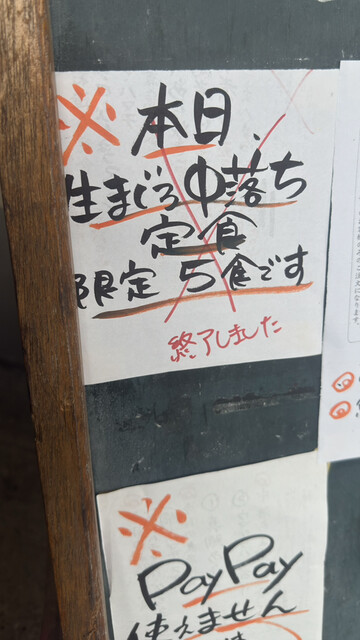 ※本日、
生まぐろ中落ち
定食
限定 5食です
終了しました
※
PayPay
使えません